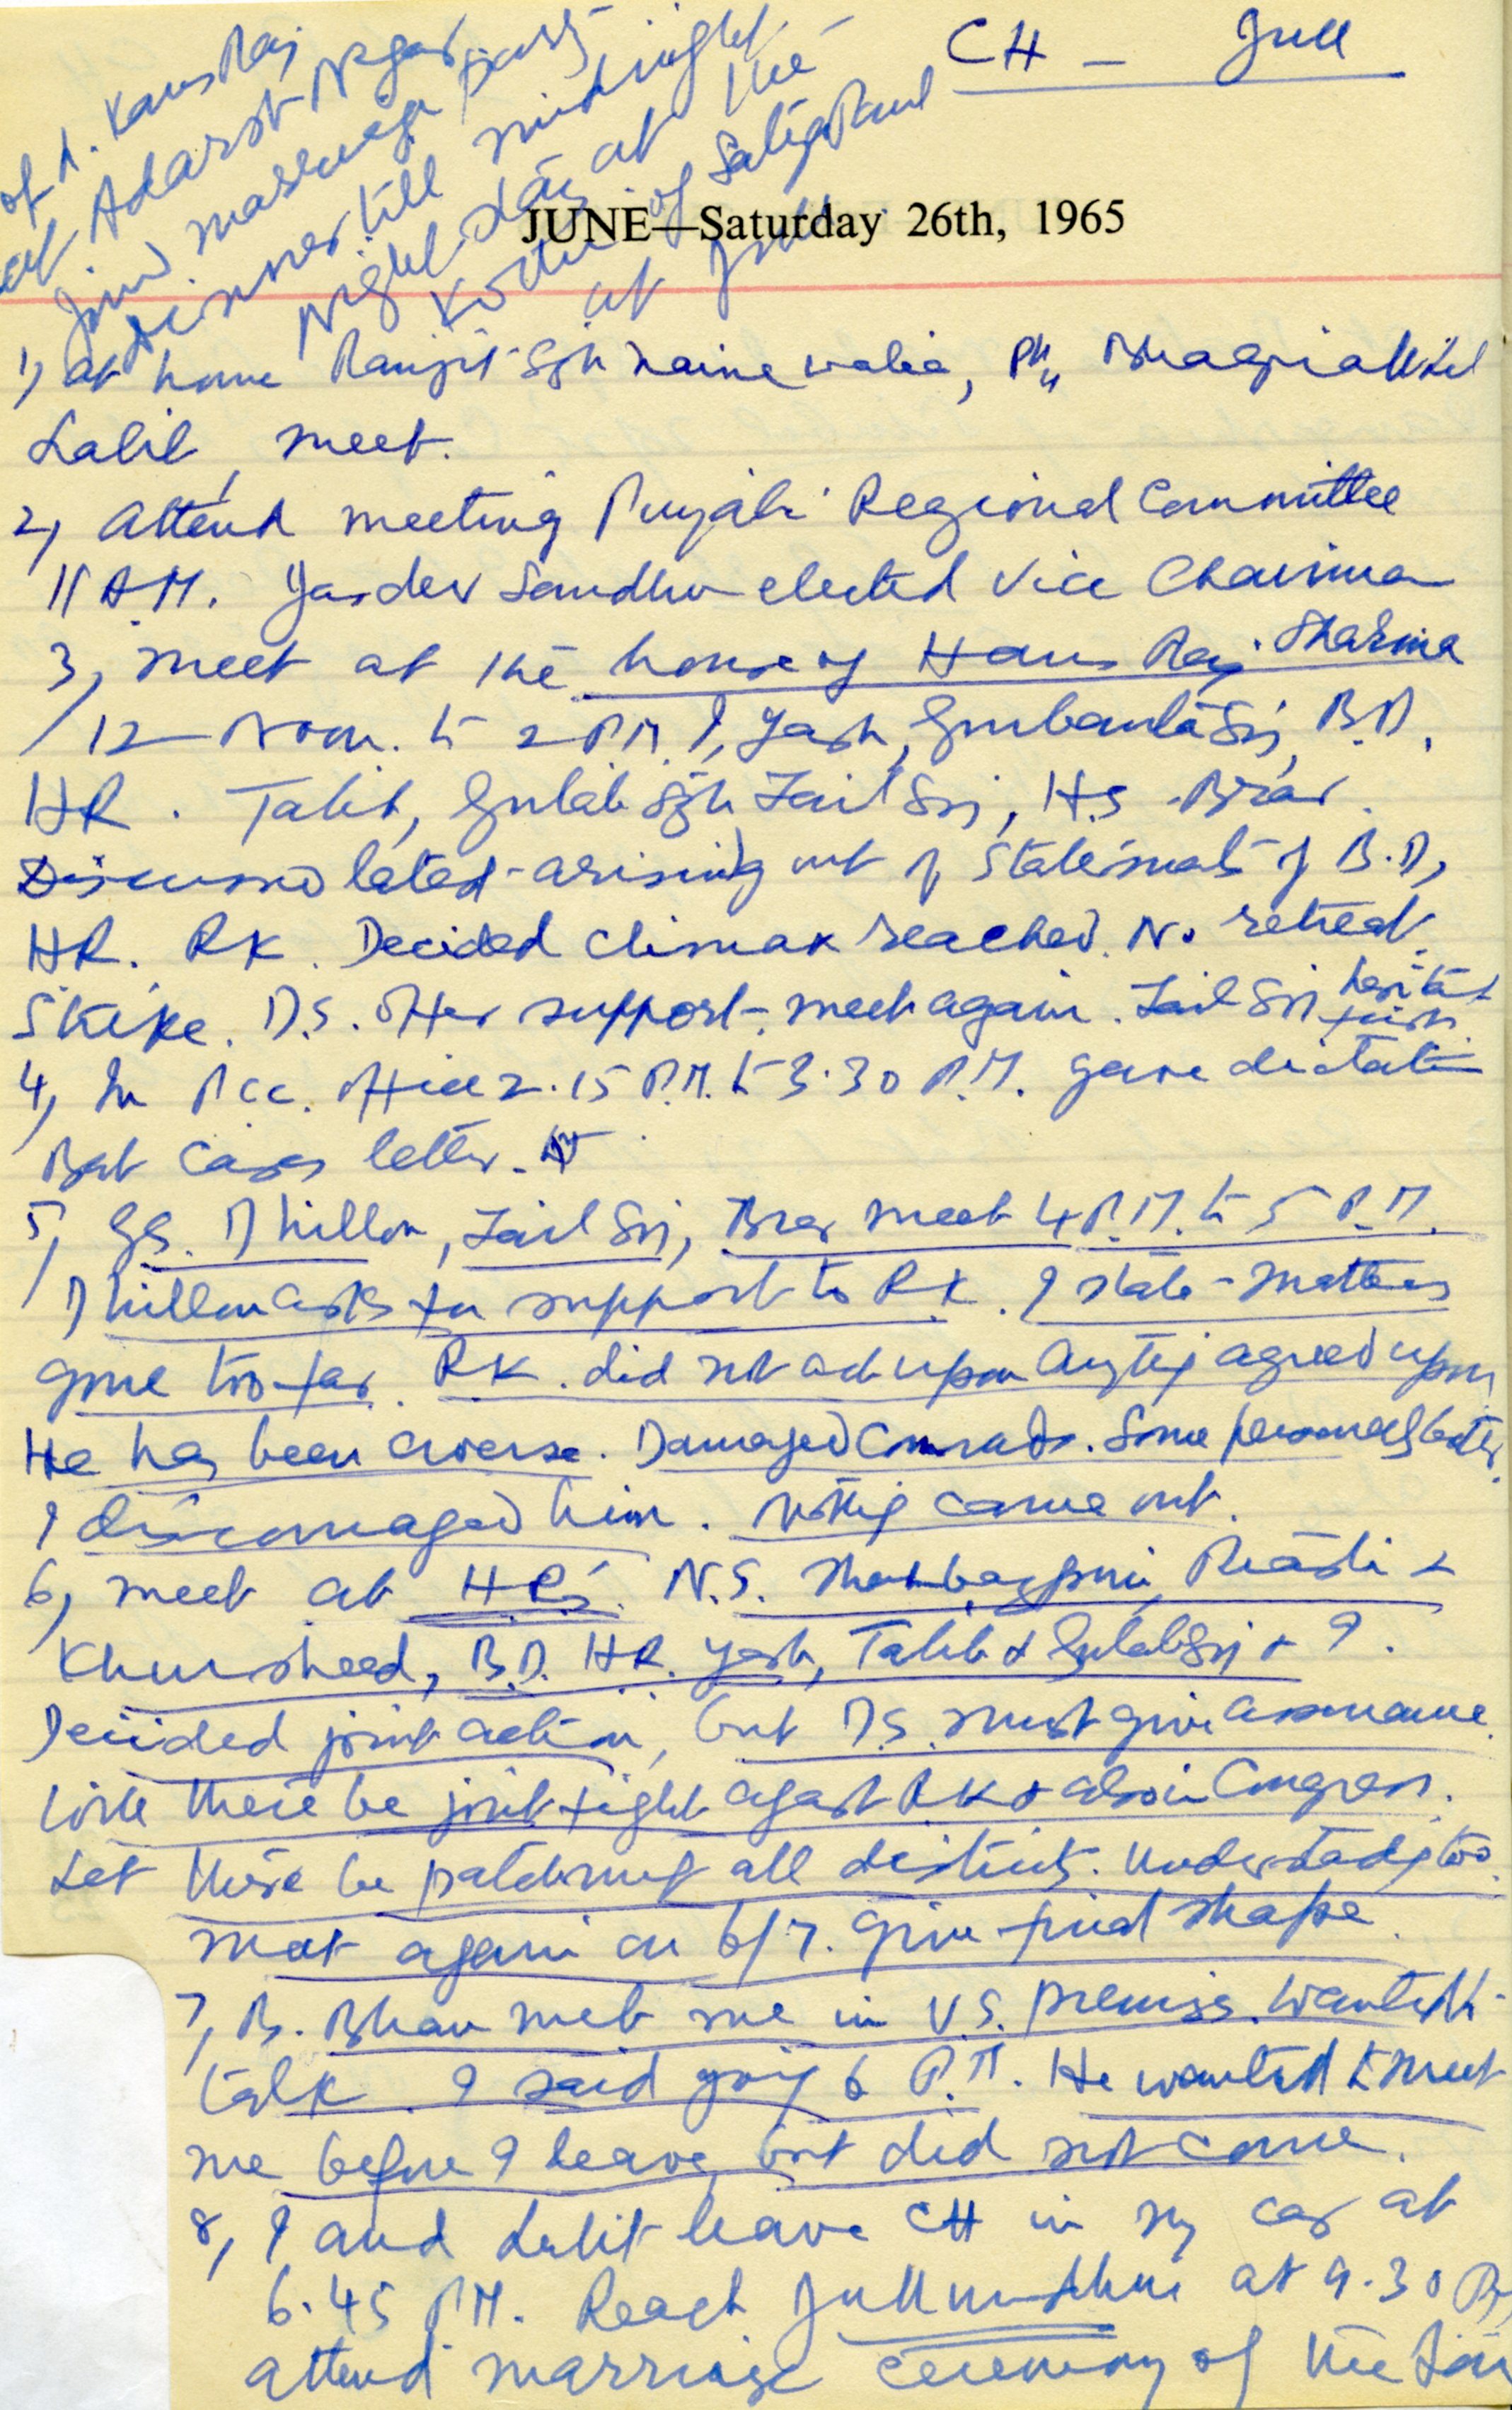 CH - Jull
JUNE—Saturday 26th, 1965
1) at home Ranjit Sgh Nainewalia,
Lalit, meet.
2, Attend meeting Punjabi Regional Committee
11 A.M. Yasdev Sandhu elected Vice Chairman
3, meet at the house of Hans Raj Sharma
12 Noon. to 2 P.M. I, Yash, Gurbanta Sgj, B.D,
HR. Talib, Gulab Sgh Zail Sgj, H.S. Brar.
Discussed lated - arising out of statements of B.D,
HR. RK. Decided climax reached. No retreat.
Strike. D.S. offer support - meet again. Zail Sgj
4, In P.C.C. office 2.15 P.M. to 3.30 P.M. gave dictation
letter.
5, GS. Dhillon, Zail Sgj, Brar meet 4 P.M. to 5 P.M.
Dhillon asks for support to RK. I state - matters
gone too far. RK. did not act upon anythg agreed upon
He has been averse. Damaged Comrades. Some personal
I discouraged him. Nothig came out.
6, meet at HR's. N.S. &
Khursheed, B.D. HR. Yash, Talib & Gulab Sgj & I.
Decided joint action, but D.S. must give assurance.
there be joint fight agast RK & also in Congress.
Let there be all districts. Understadg too.
meet again on 6/7. give final shape.
7, B. Bhan met me in V.S. premises. Wanted to
talk. I said goig 6 P.M. He wanted to meet
me before I leave, but did not come.
8, I and Lalit leave CH in my car at
6.45 PM. Reach Jullundhur at 9.30 P.
attend marriage ceremony of the
of L. Hans Raj
at Adarsh Nagar
Join marriage party
dinner till midnight.
Night stay at the
Kothi of Salig Ram
at Jull